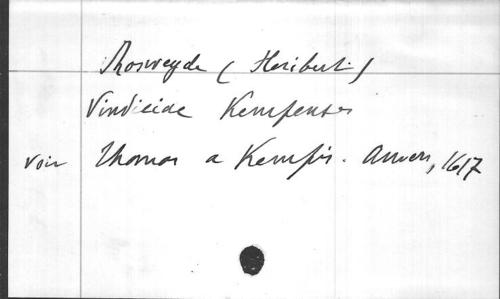 Rosweyde (Heribert)
Vindiciae Kempenses
voir Thomas a Kempis. Anvers, 1617